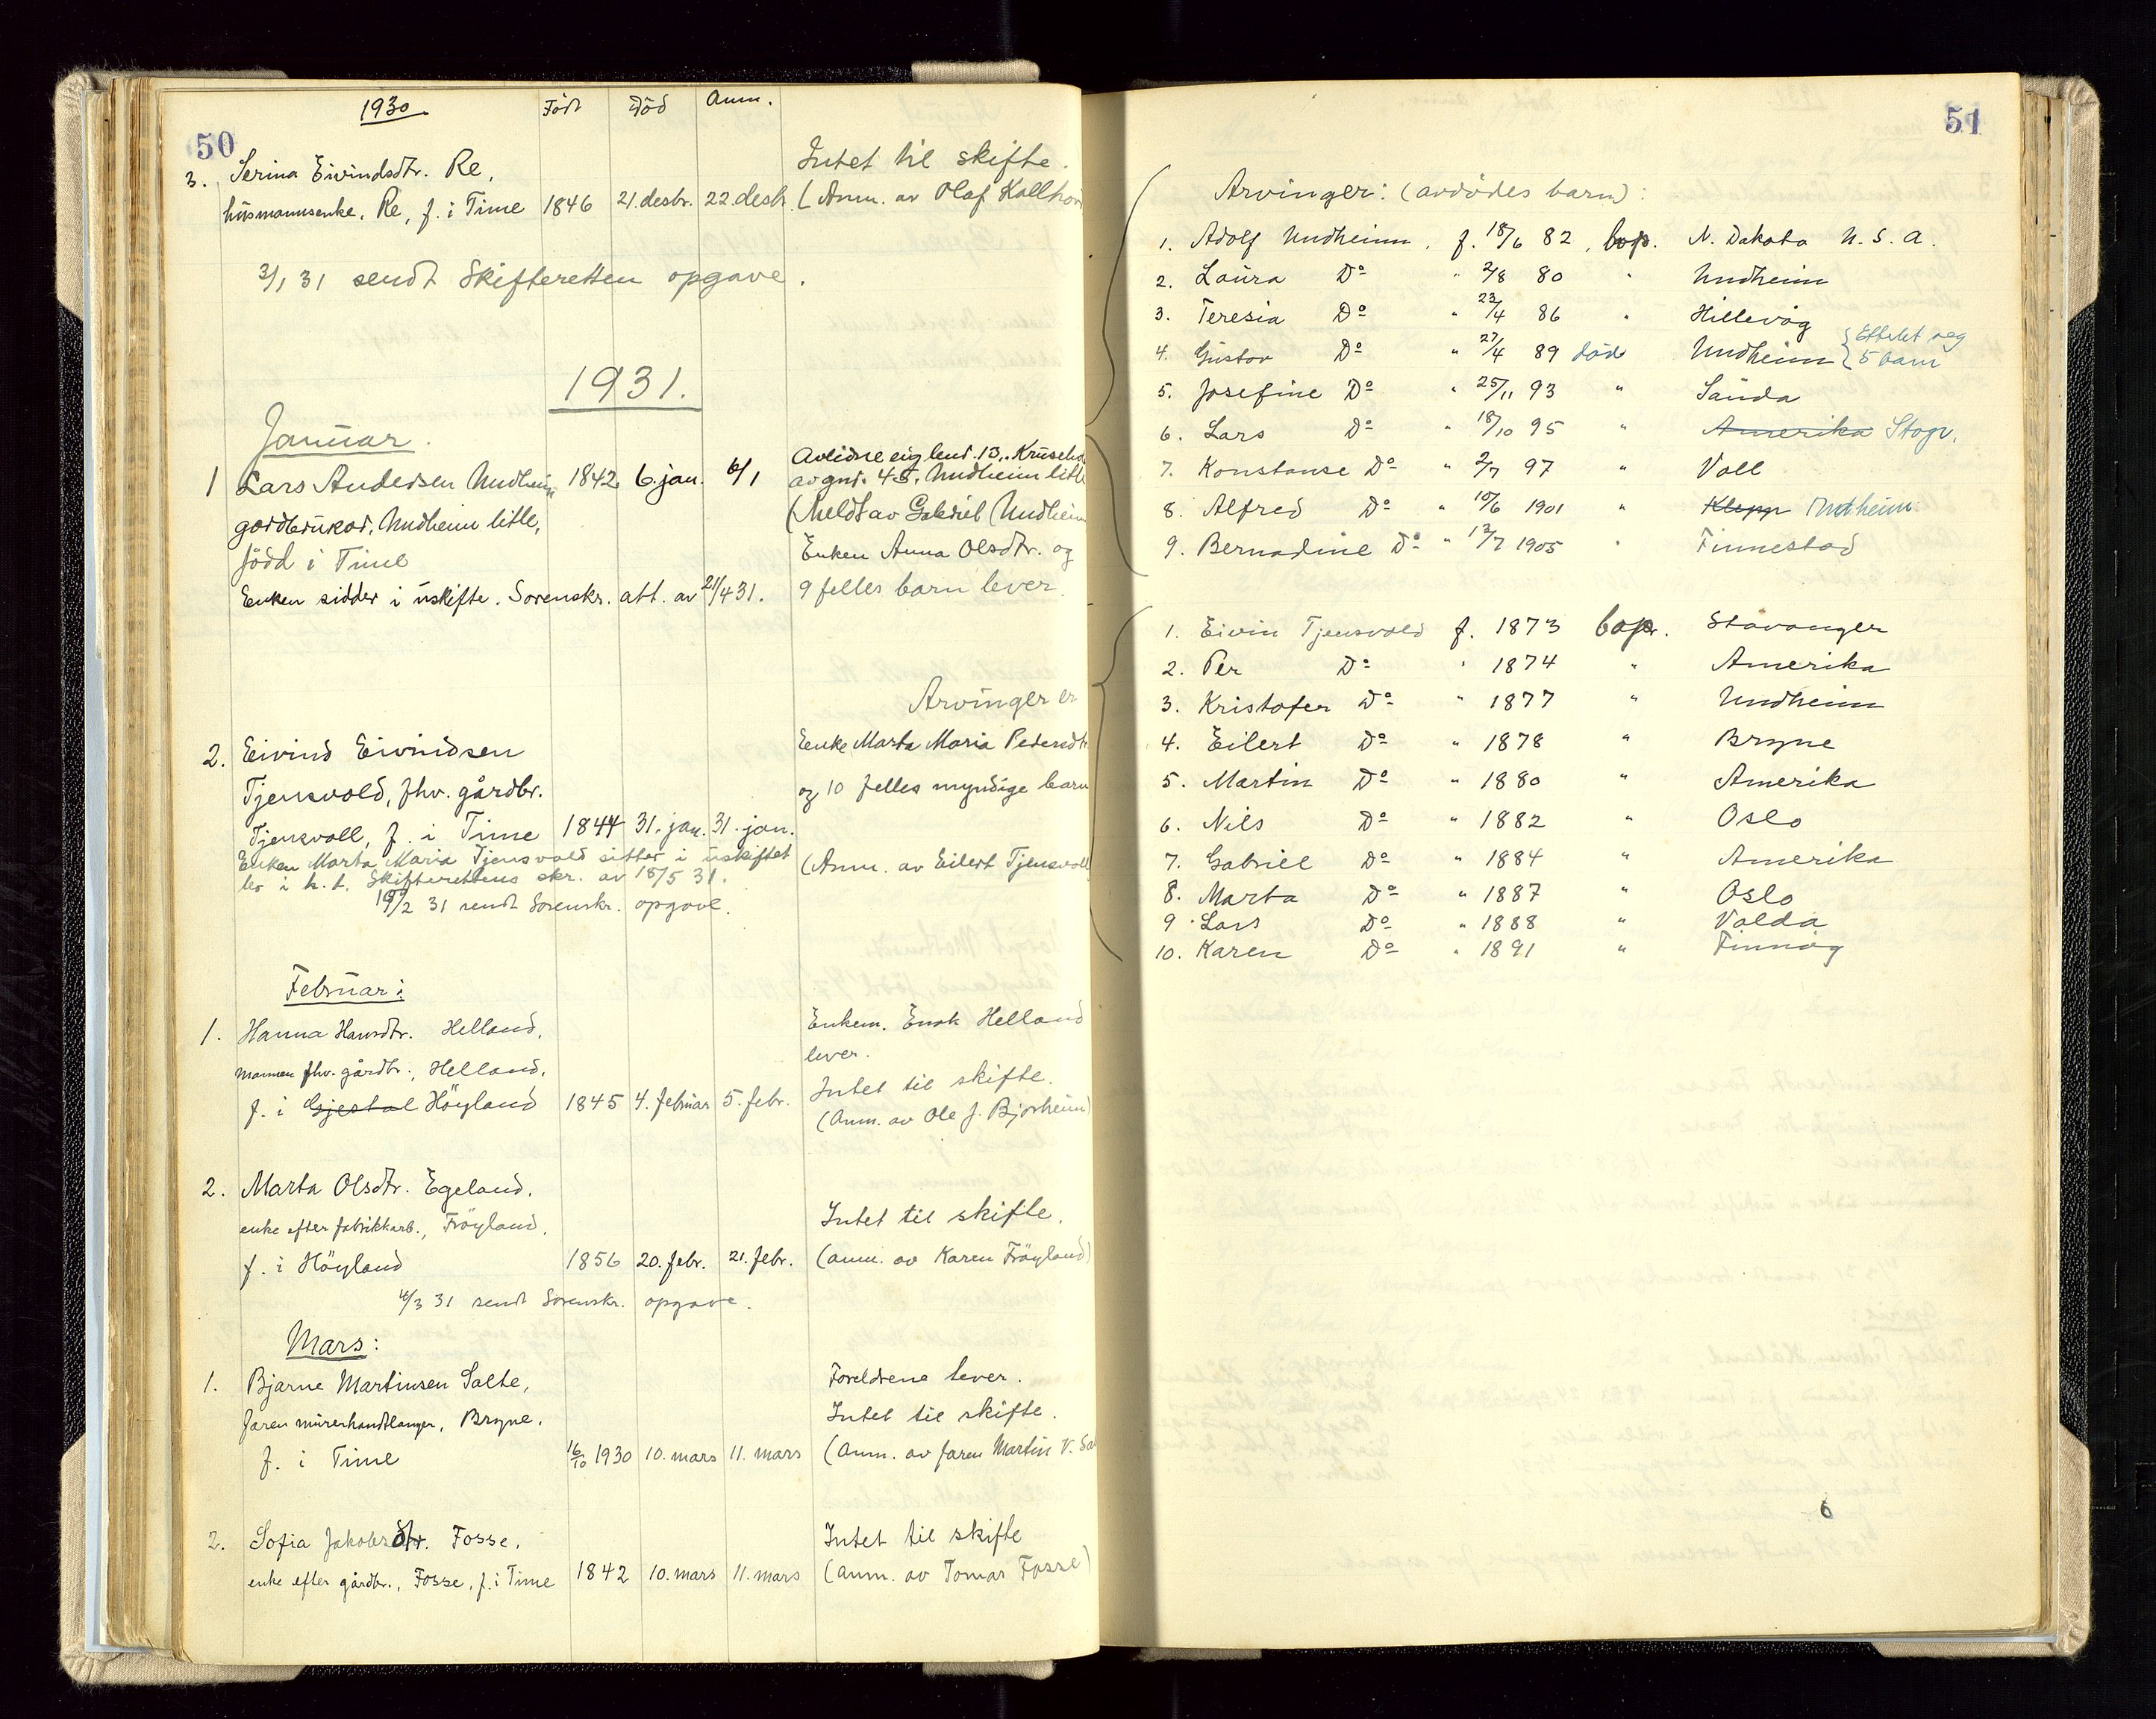 50
1930
Född Död Anm.
3. Serina Eivindsdtr. Re, Intet til skifte.
husmannsenke, Re, f. i Time 1846 21. desbr. 22. desbr. (Anm. av Olaf
3/1 31 sendt Skifteretten opgave.
1931.
Januar.
1 Lars Andersen Undheim 1842 6. jan. 6/1 Avlidne eig lend. 13,
gardbrukar, Undheim litle, av gnr. 43, Undheim litle
född i Time (Meldt av Gabriel Undheim
Enken Anna Olsdtr. og
Enken sidder i uskifte. Sorenskr. att. av 21/4 31. 9 felles barn lever.
Arvinger er
2. Eivind Eivindsen Enke Marta Maria Pedersdtr.
Tjensvold, fhv. gårdbr. og 10 felles myndige barn
Tjensvoll, f. i Time 1844 31. jan. 31. jan.
Enken Marta Maria Tjensvold sitter i uskiftet (Anm. av Eilert Tjensvoll
bo i h. t. Skifterettens skr. av 18/5 31.
19/2 31 sendt Sorenskr. opgave.
Februar:
1. Hanna Hansdtr. Helland, Enkem. Enok Helland
mannen fhv. gårdbr., Helland, lever.
f. i Gjestal Höyland 1845 4. februar 5. febr. Intet til skifte.
(Anm. av Ole J. Bjorheim)
2. Marta Olsdtr. Egeland,
enke efter fabrikkarb., Fröyland, Intet til skifte.
f. i Höyland 1856 20. febr. 21. febr. (anm. av Karen Fröyland)
4/3 31 sendt Sorenskr. opgave.
Mars:
1. Bjarne Martinsen Salte, Foreldrene lever.
faren murerhandlanger, Bryne, Intet til skifte.
f. i Time 16/10 1930 10. mars 11. mars (Anm. av faren Martin V. Sa
2. Sofia Jakobsdtr. Fosse, Intet til skifte
enke efter gårdbr., Fosse, f. i Time 1842 10. mars 11. mars (anm. av Tomas Fosse)
51
Arvinger: (avdødes barn):
1. Adolf Undheim, f. 18/6 82, bop. N. Dakota U. S. A.
2. Laura Do " 2/8 80 " Undheim
3. Teresia Do " 23/4 86 " Hillevåg
4. Gustav Do " 27/4 89 död Undheim { Efterlot seg 5 barn
5. Josefine Do " 25/11 93 " Sauda
6. Lars Do " 18/10 95 " Amerika Stogr.
7. Konstanse Do " 2/7 97 " Voll
8. Alfred Do " 10/6 1901 " Klepp Undheim
9. Bernadine Do " 13/7 1905 " Finnestad
1. Eivin Tjensvold f. 1873 bop. Stavanger
2. Per Do " 1874 " Amerika
3. Kristofer Do " 1877 " Undheim
4. Eilert Do " 1878 " Bryne
5. Martin Do " 1880 " Amerika
6. Nils Do " 1882 " Oslo
7. Gabriel Do " 1884 " Amerika
8. Marta Do " 1887 " Oslo
9. Lars Do " 1888 " Volda
10. Karen Do " 1891 "
6